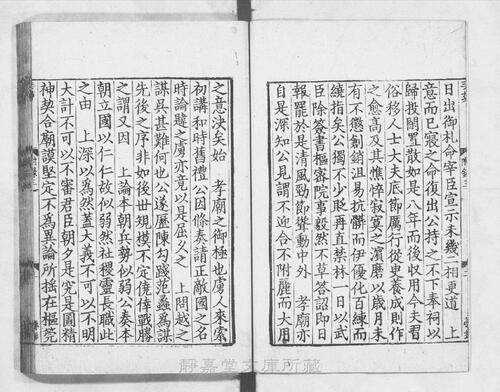 日出御札命宰臣宣示未幾二相更道　上
意而已寢之命復出公持之不下奉祠以
歸投閒置散如是八年而後収用今夫習
俗移人士大夫底節厲行從史養成則作
之愈高及其憔悴寂寞之濱磨以歲月未
有不懲制銷沮易抗髒而伊優化百練而
繞指矣公獨不少貶再直禁林一日以武
臣除簽書樞密院事毅然不草答詔即日
報罷於是清風勁節聳動中外　孝廟亦
自是深知公見謂不迎合不附麗而大用
之意決矣始　孝廟之御極也虜人來索
初講和時舊禮公因條奏請正敵國之名
時論韙之虜亦竟以是屈久之　上問越之
謀呉甚難何也公遂歷陳勾踐范蠡爲謀
先後之序非如後世規模不定僥倖戰勝
之謂又因　上論本朝兵勢似弱公奏本
朝立國以仁仁故似弱然社稷靈長職此
之由　上深以爲然蓋大義不可以不明
大計不可以不審君臣朝夕是究是圖精
神契合廟謨堅定不爲異論所揺在樞筦
靜嘉堂文庫所藏